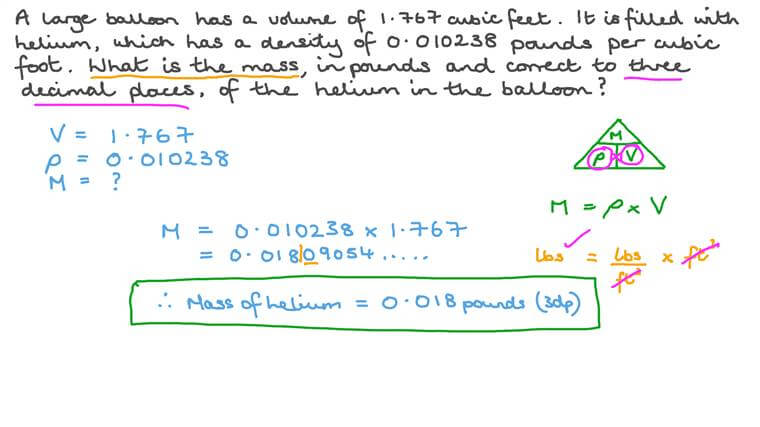 A large balloon has a volume of 1.767 cubic feet. It is filled with
helium, which has a density of 0.010238 pounds per cubic
foot. What is the mass, in pounds and correct to three
decimal places, of the helium in the balloon?
V = 1.767
ρ = 0.010238
M = ?
M
ρ × V
M = ρ × V
M = 0.010238 × 1.767
= 0.01809054.....
lbs = lbs/ft³ × ft³
∴ Mass of helium = 0.018 pounds (3dp)